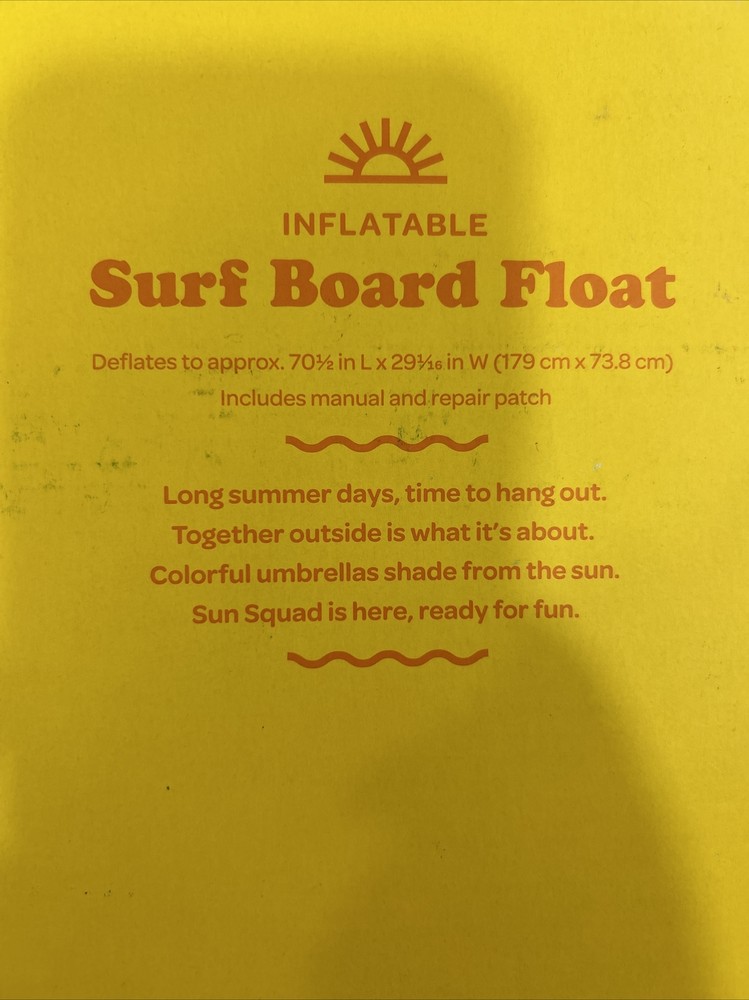 INFLATABLE
Surf Board Float
Deflates to approx. 70½ in L x 291⁄16 in W (179 cm x 73.8 cm)
Includes manual and repair patch
Long summer days, time to hang out.
Together outside is what it's about.
Colorful umbrellas shade from the sun.
Sun Squad is here, ready for fun.